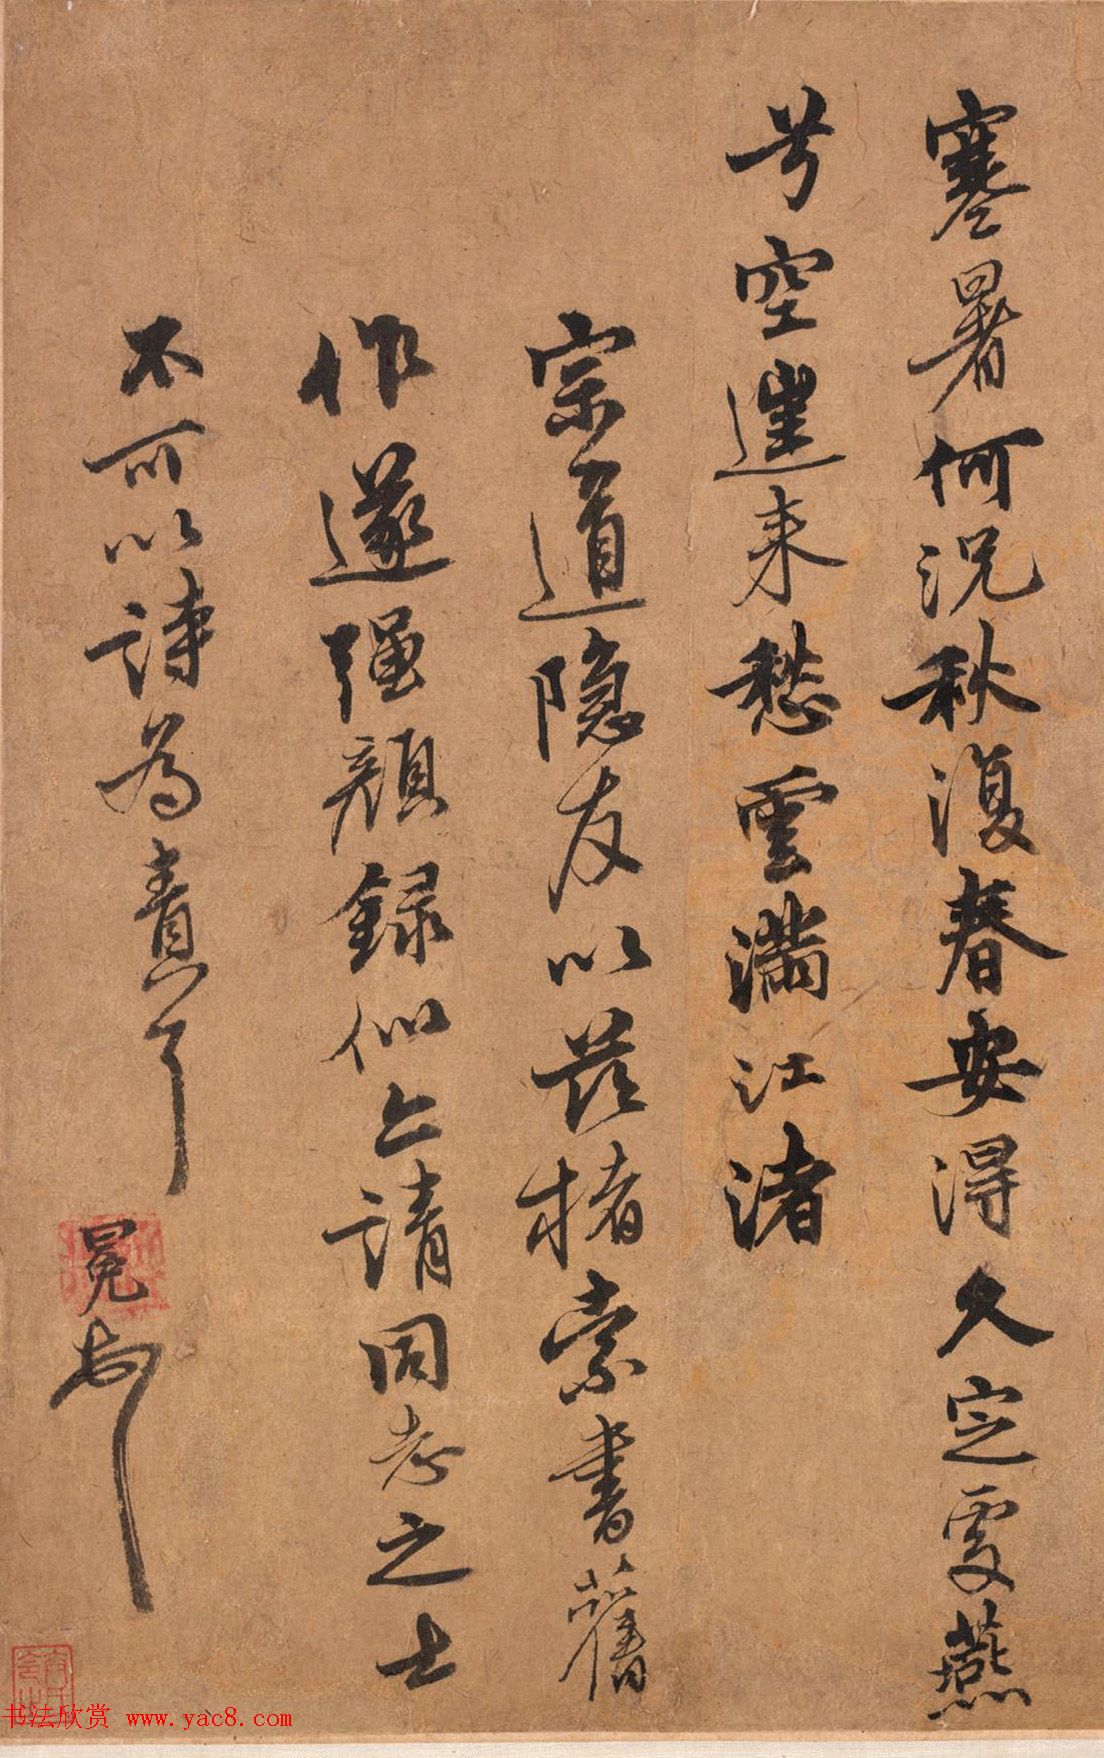 寒暑何況秋復春安得久定更燕
兮空進来愁雲滿江渚
宗道隐友以茲楮索書舊
作遂强顔録似上請同志之士
不可以詩為責了
冕頓
书法欣赏 www.yac8.com